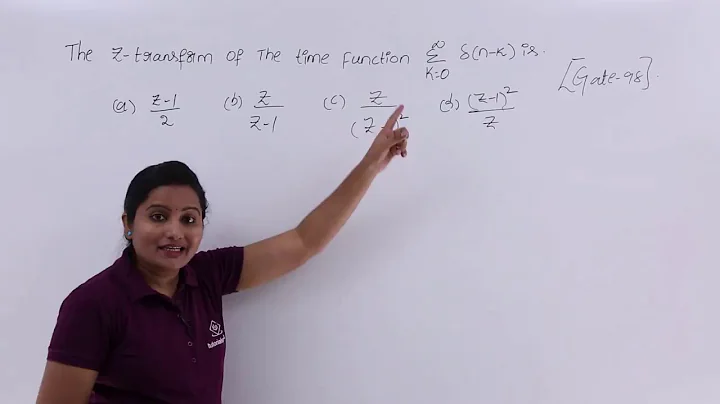 The Z-transform of the time function ∞ Σ K=0 δ(n-k) is.
[Gate-98].
(a) Z-1 / 2 (b) Z / Z-1 (c) Z / (Z- )² (d) (Z-1)² / Z